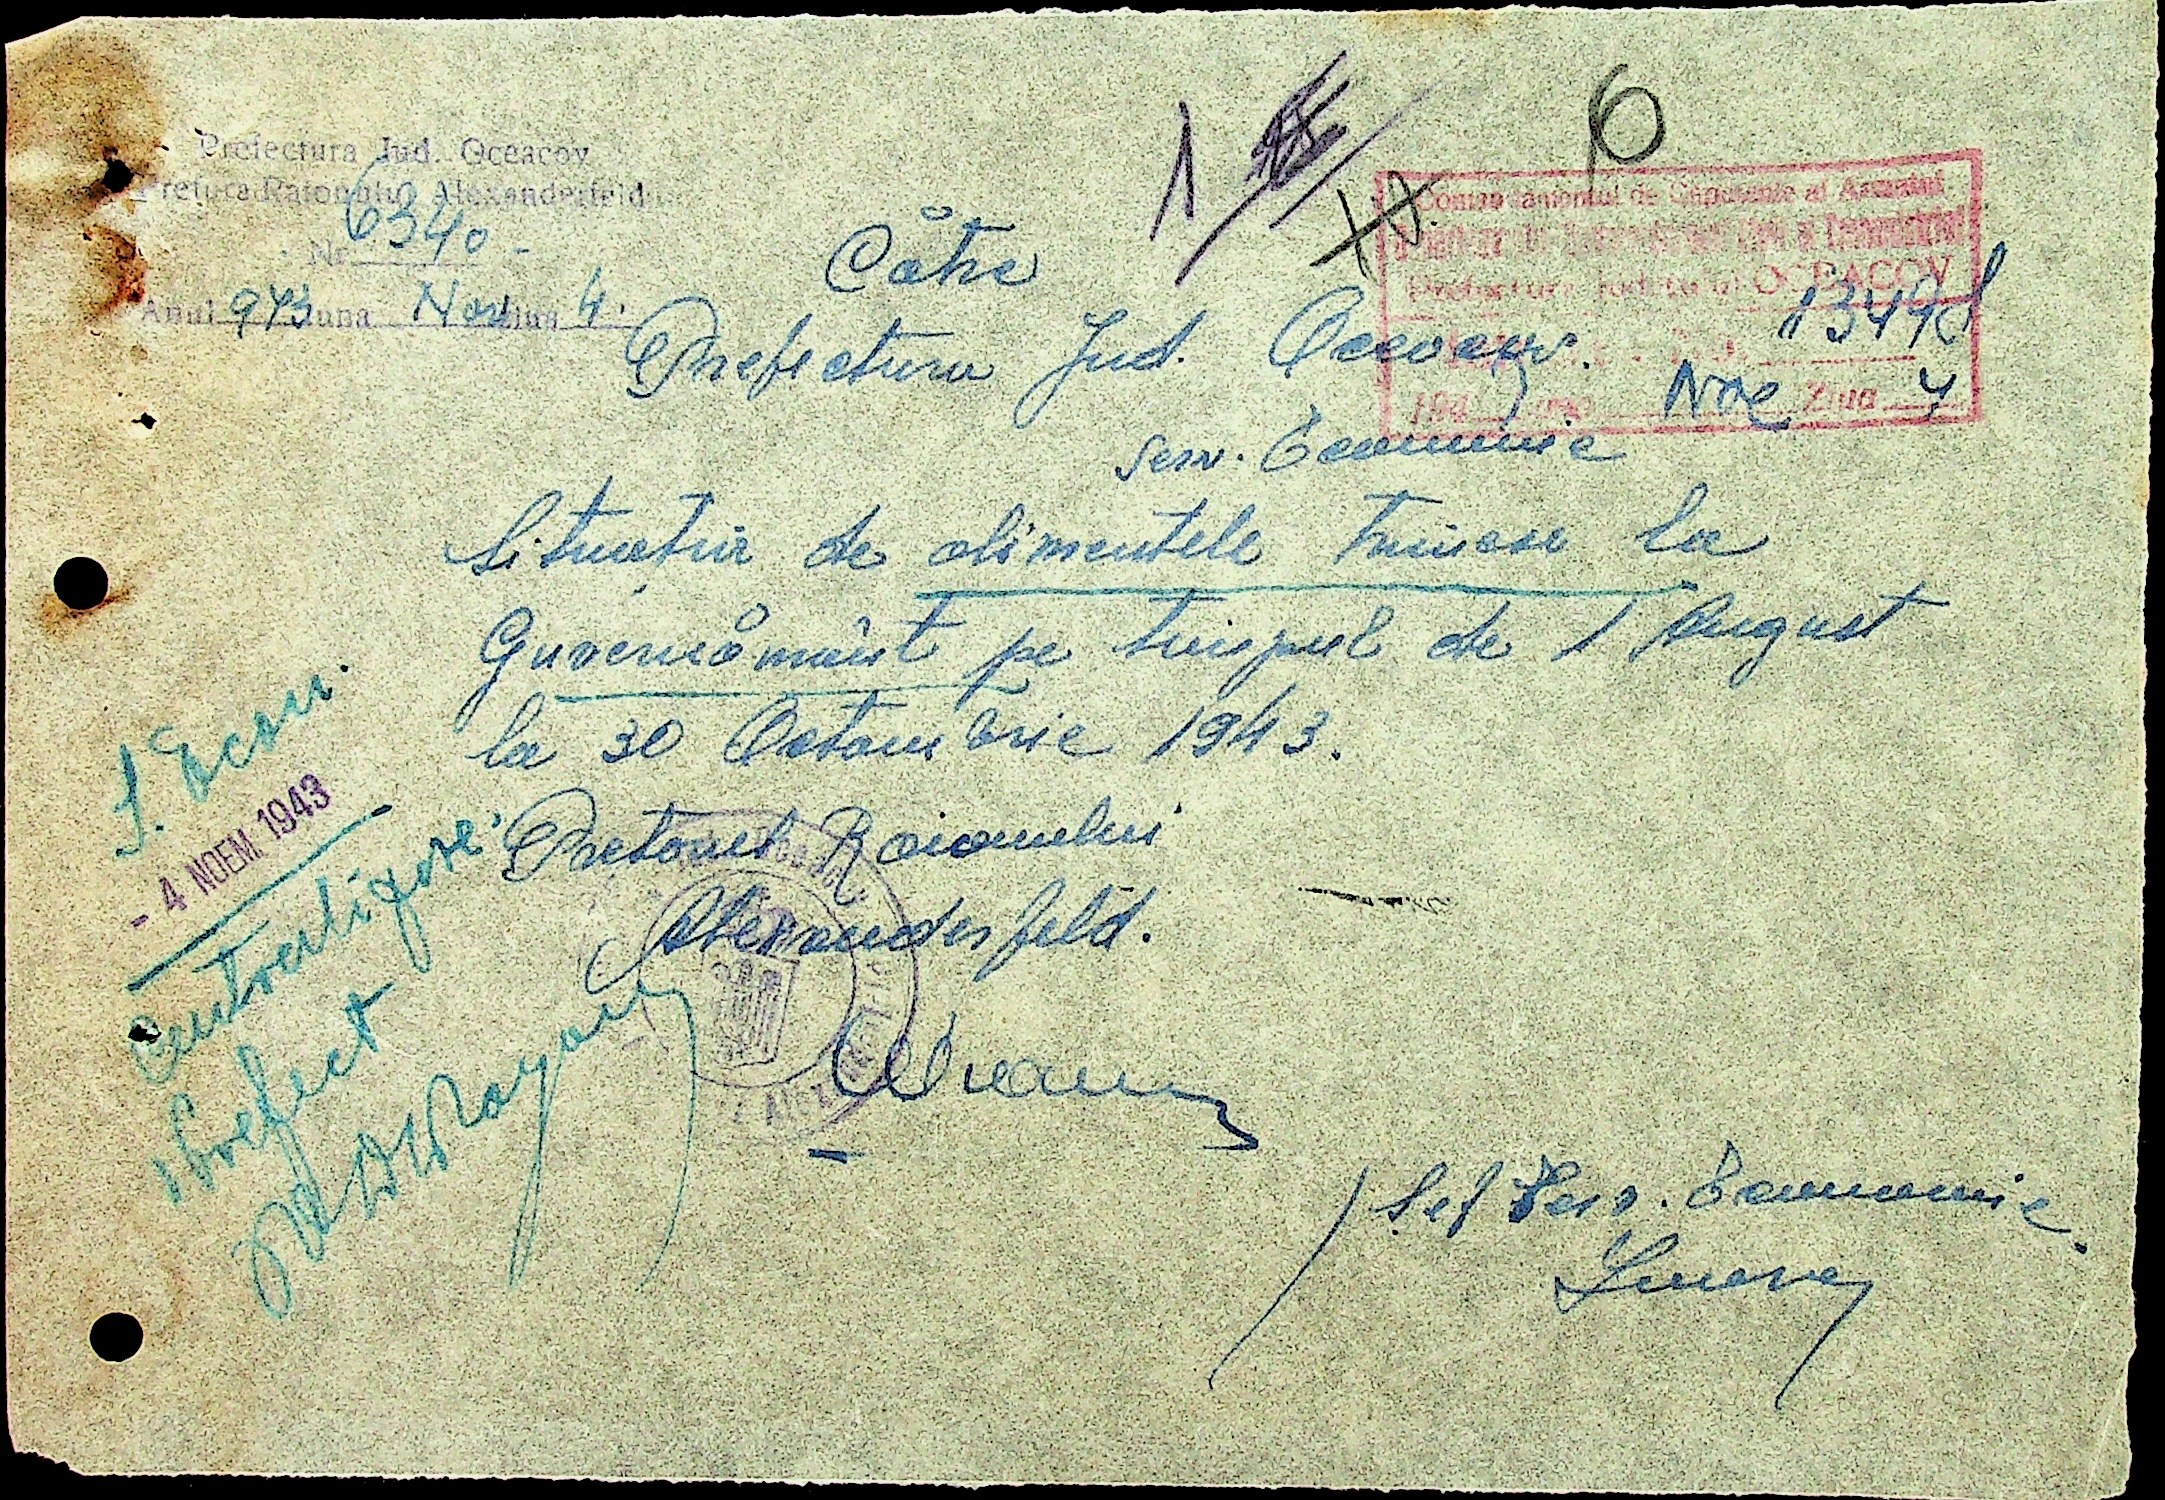 Prefectura Jud. Oceacov
Pretura Raionului Alexanderfeld
Nr. 6340 -
Anul 943 Luna Nov Ziua 4.
1
6
Comandamentul de Căpetenie al Armatei
Prefectura Județului OCEACOV
13498
194 Luna Noe Ziua 4
Cătrе
Prefectura Jud. Oceacov.
Serv. Economic
Situația de alimentele trimese la
Guvernământ pe timpul de 1 August
la 30 Octombrie 1943.
Pretorul Raionului
Alexanderfeld.
S. Econ.
- 4 NOEM 1943
Centralizare.
Prefect
Șef Serv. Economic.